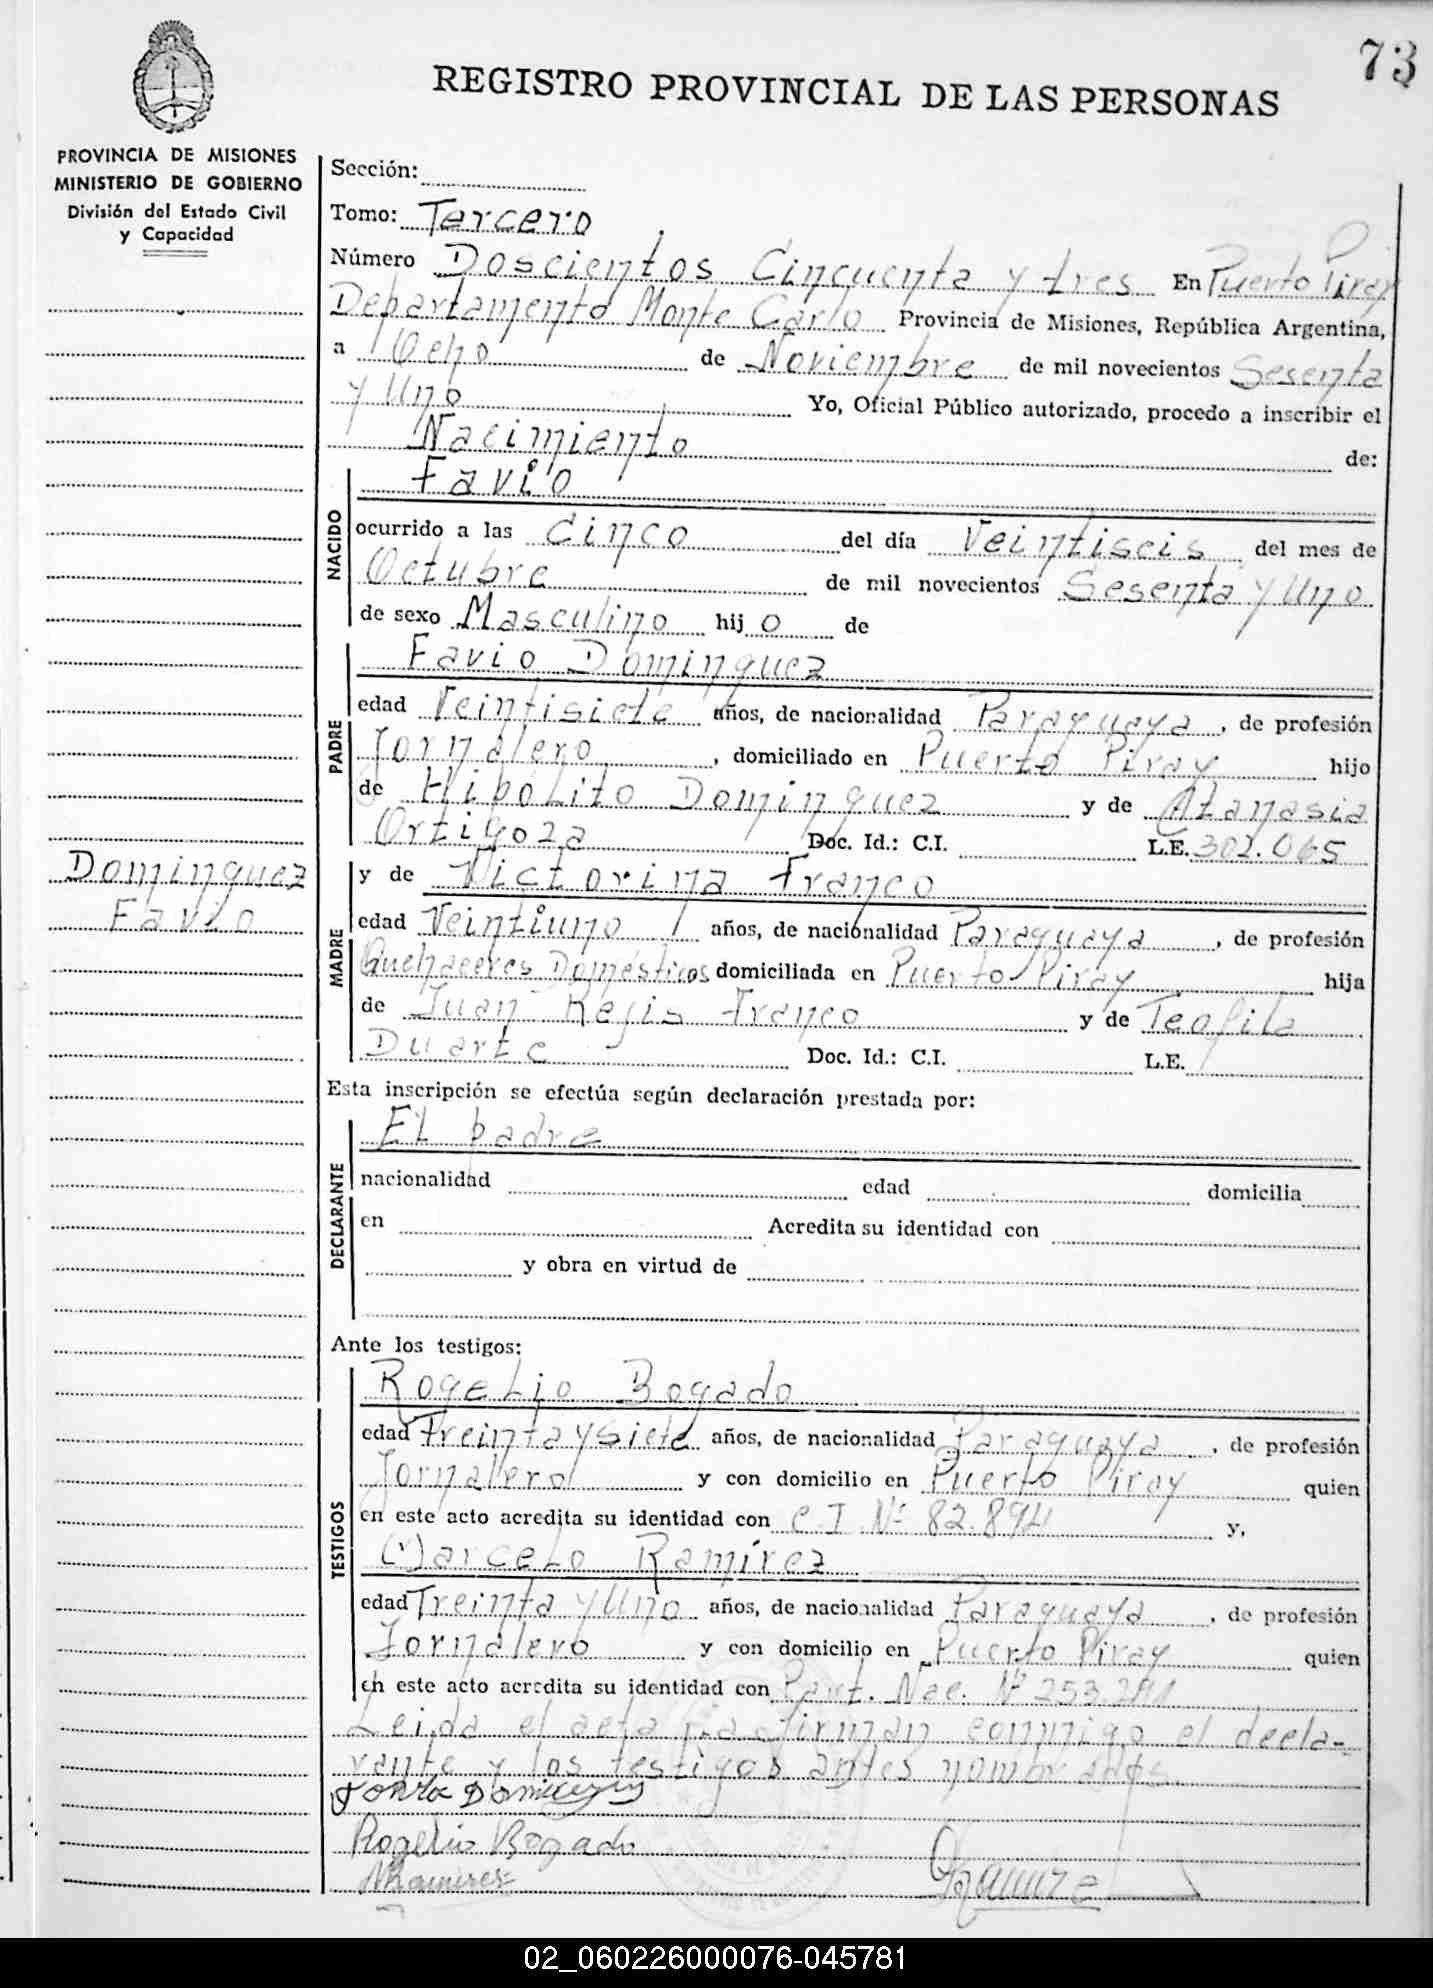 73
REGISTRO PROVINCIAL DE LAS PERSONAS
PROVINCIA DE MISIONES
MINISTERIO DE GOBIERNO
División del Estado Civil
y Capacidad
Sección:
Tomo: Tercero
Número Doscientos Cincuenta y tres En Puerto Piray
Departamento Monte Carlo Provincia de Misiones, República Argentina,
a Ocho de Noviembre de mil novecientos Sesenta
y Uno Yo, Oficial Público autorizado, procedo a inscribir el
Nacimiento de:
NACIDO
Favio
ocurrido a las Cinco del día Veintiseis del mes de
Octubre de mil novecientos Sesenta y Uno
de sexo Masculino hij o de
PADRE
Favio Dominguez
edad Veintisiete años, de nacionalidad Paraguaya, de profesión
Jornalero, domiciliado en Puerto Piray hijo
de Hipólito Dominguez y de Atanasia
Ortigoza Doc. Id.: C.I. L.E. 302.065
Dominguez
Favio
MADRE
y de Victorina Franco
edad Veintiuno años, de nacionalidad Paraguaya, de profesión
Quehaceres Domésticos domiciliada en Puerto Piray hija
de Juan Regis Franco y de Teofila
Duarte Doc. Id.: C.I. L.E.
Esta inscripción se efectúa según declaración prestada por:
DECLARANTE
El padre
nacionalidad edad domicilia
en Acredita su identidad con
y obra en virtud de
Ante los testigos:
TESTIGOS
Rogelio Bogado
edad Treinta y siete años, de nacionalidad Paraguaya, de profesión
Jornalero y con domicilio en Puerto Piray quien
en este acto acredita su identidad con C.I Nº 82.894 y,
Marcelo Ramírez
edad Treinta y Uno años, de nacionalidad Paraguaya, de profesión
Jornalero y con domicilio en Puerto Piray quien
en este acto acredita su identidad con Nac. Nº
Leida el acta la firman conmigo el decla-
rante y los testigos antes nombrados.
Rogelio Bogado
02_060226000076-045781